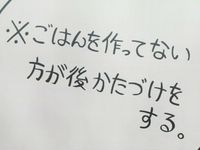 ※ごはんを作ってない
方が後かたづけを
する。